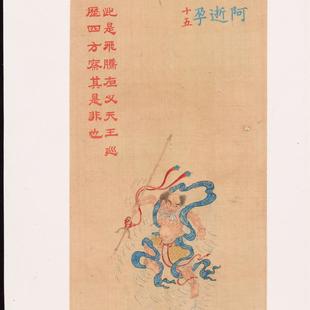 阿逝孕
十五
此是飛騰夜叉天王巡
歷四方察其是非也